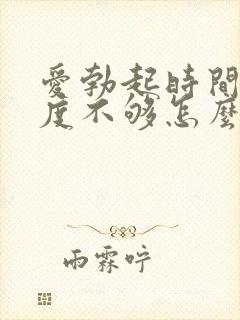 愛勃起時間
度不够怎麼
雨霖咛